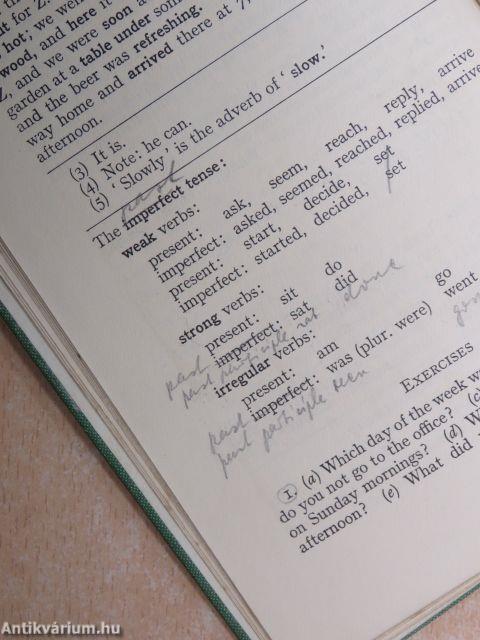 it for Z.
hot; we went
wood, and here it
Z, and we were soon a
garden at a table under som
and the beer was refreshing.
way home and arrived there at 7
afternoon.
(3) It is.
(4) Note: he can.
(5) ‘Slowly’ is the adverb of ‘slow.’
past
The imperfect tense:
weak verbs:
present: ask, seem, reach, reply, arrive
imperfect: asked, seemed, reached, replied, arrived
present: start, decide, set
imperfect: started, decided, set
strong verbs:
present: sit do
past imperfect: sat did done
past participle sat
irregular verbs:
present: am go
past imperfect: was (plur. were) went gone
past participle been
EXERCISES
1. (a) Which day of the week w
do you not go to the office? (c
on Sunday mornings? (d) W
afternoon? (e) What did
Antikvárium.hu